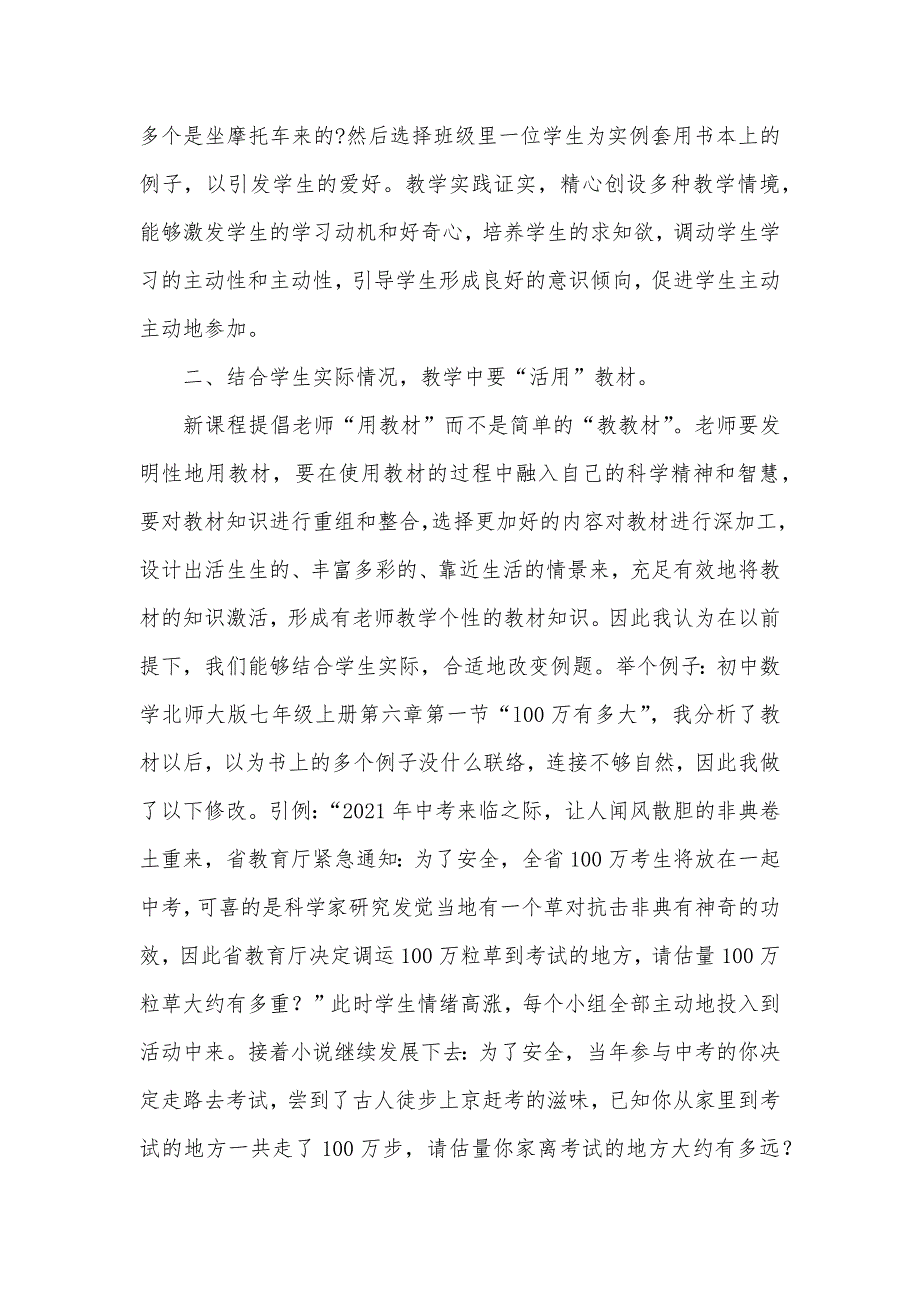 多个是坐摩托车来的?然后选择班级里一位学生为实例套用书本上的
例子，以引发学生的爱好。教学实践证实，精心创设多种教学情境，
能够激发学生的学习动机和好奇心，培养学生的求知欲，调动学生学
习的主动性和主动性，引导学生形成良好的意识倾向，促进学生主动
主动地参加。
二、结合学生实际情况，教学中要“活用”教材。
新课程提倡老师“用教材”而不是简单的“教教材”。老师要发
明性地用教材，要在使用教材的过程中融入自己的科学精神和智慧，
要对教材知识进行重组和整合，选择更加好的内容对教材进行深加工，
设计出活生生的、丰富多彩的、靠近生活的情景来，充足有效地将教
材的知识激活，形成有老师教学个性的教材知识。因此我认为在以前
提下，我们能够结合学生实际，合适地改变例题。举个例子：初中数
学北师大版七年级上册第六章第一节“l00 万有多大”，我分析了教
材以后，以为书上的多个例子没什么联络，连接不够自然，因此我做
了以下修改。引例：“2021 年中考来临之际，让人闻风散胆的非典卷
土重来，省教育厅紧急通知：为了安全，全省 100 万考生将放在一起
中考，可喜的是科学家研究发觉当地有一个草对抗击非典有神奇的功
效，因此省教育厅决定调运 100 万粒草到考试的地方，请估量 100 万
粒草大约有多重？”此时学生情绪高涨，每个小组全部主动地投入到
活动中来。接着小说继续发展下去：为了安全，当年参与中考的你决
定走路去考试，尝到了古人徒步上京赶考的滋味，已知你从家里到考
试的地方一共走了 100 万步，请估量你家离考试的地方大约有多远？